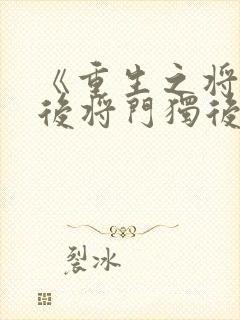 《重生之将
後将門獨後
裂冰